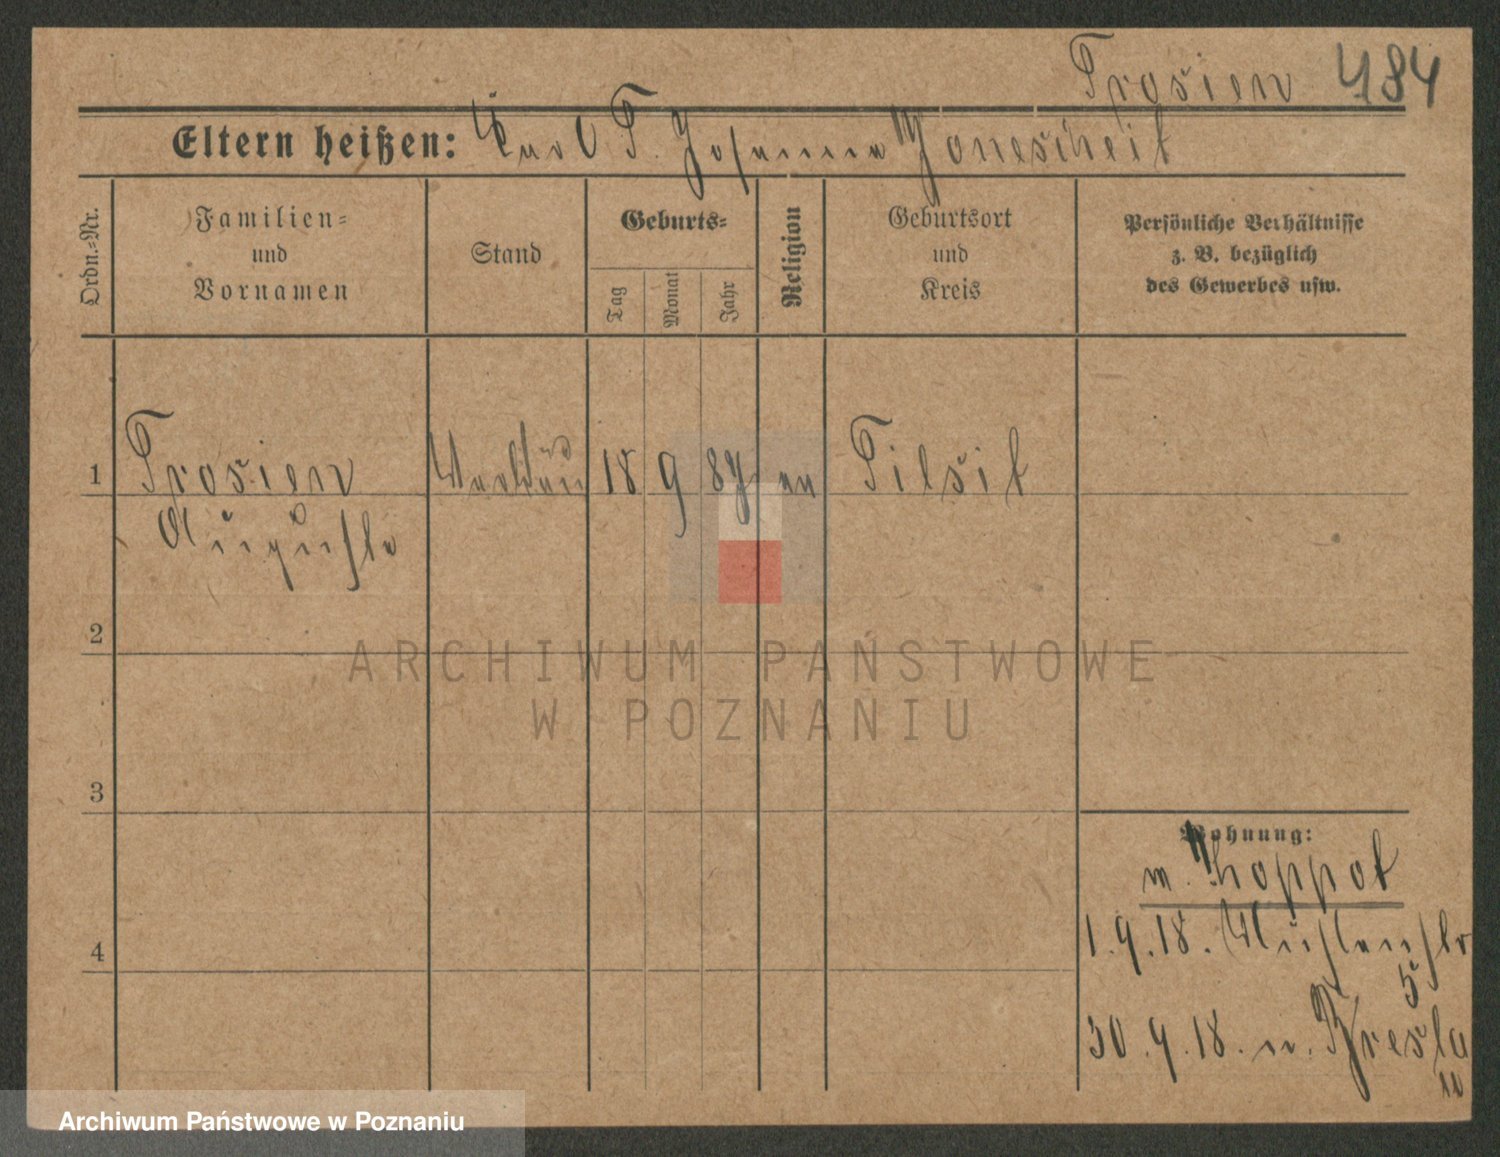 Prosien 484
Eltern heißen: Karl P. Johanna Jonescheit
Ordn.-Nr.
Familien-
und
Vornamen
Stand
Geburts-
Tag
Monat
Jahr
Religion
Geburtsort
und
Kreis
Persönliche Verhältnisse
z. B. bezüglich
des Gewerbes usw.
1 Prosien 18 9 87 Tilsit
Auguste
2
ARCHIWUM PAŃSTWOWE
W POZNANIU
3
Wohnung:
Zoppot
1.9.18.
5
30.9.18. n. Bresla
u
4
Archiwum Państwowe w Poznaniu